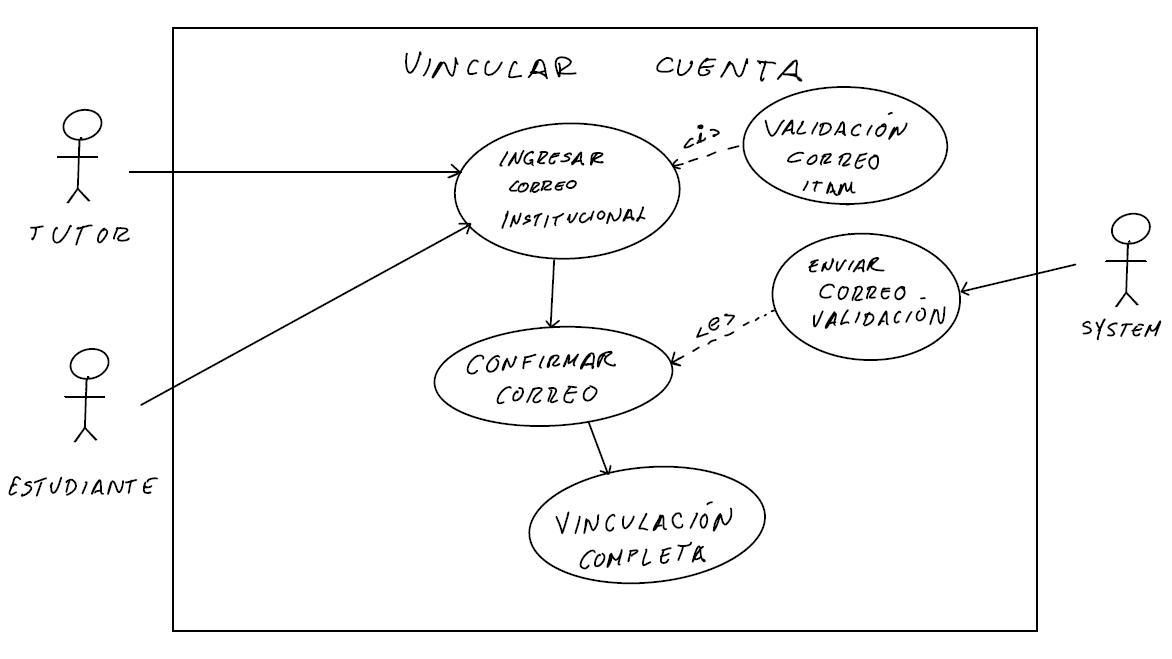 VINCULAR CUENTA
TUTOR
ESTUDIANTE
INGRESAR
CORREO
INSTITUCIONAL
<i>
VALIDACIÓN
CORREO
ITAM
ENVIAR
CORREO
VALIDACIÓN
<e>
SYSTEM
CONFIRMAR
CORREO
VINCULACIÓN
COMPLETA